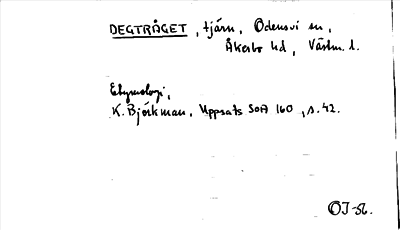 DEGTRÅGET, tjärn, Odensvi sn,
Åkerbo hd, Västm. l.
Etymologi,
K. Björkman, Uppsats SOA 160, s. 42.
OJ-St.